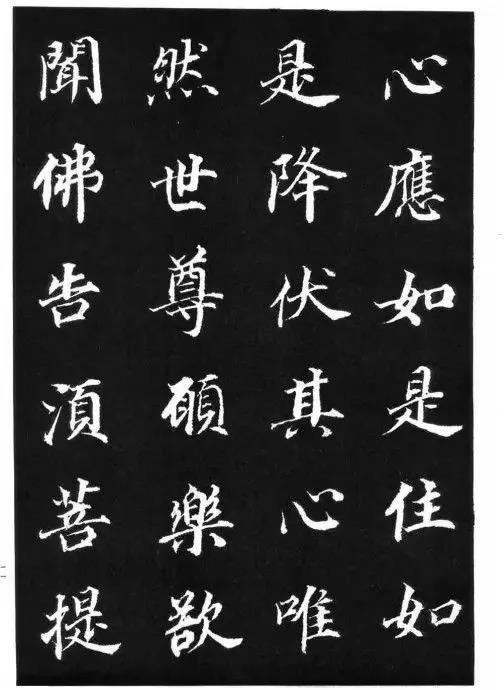 心應如是住如
是降伏其心唯
然世尊願樂欲
聞佛告湏菩提